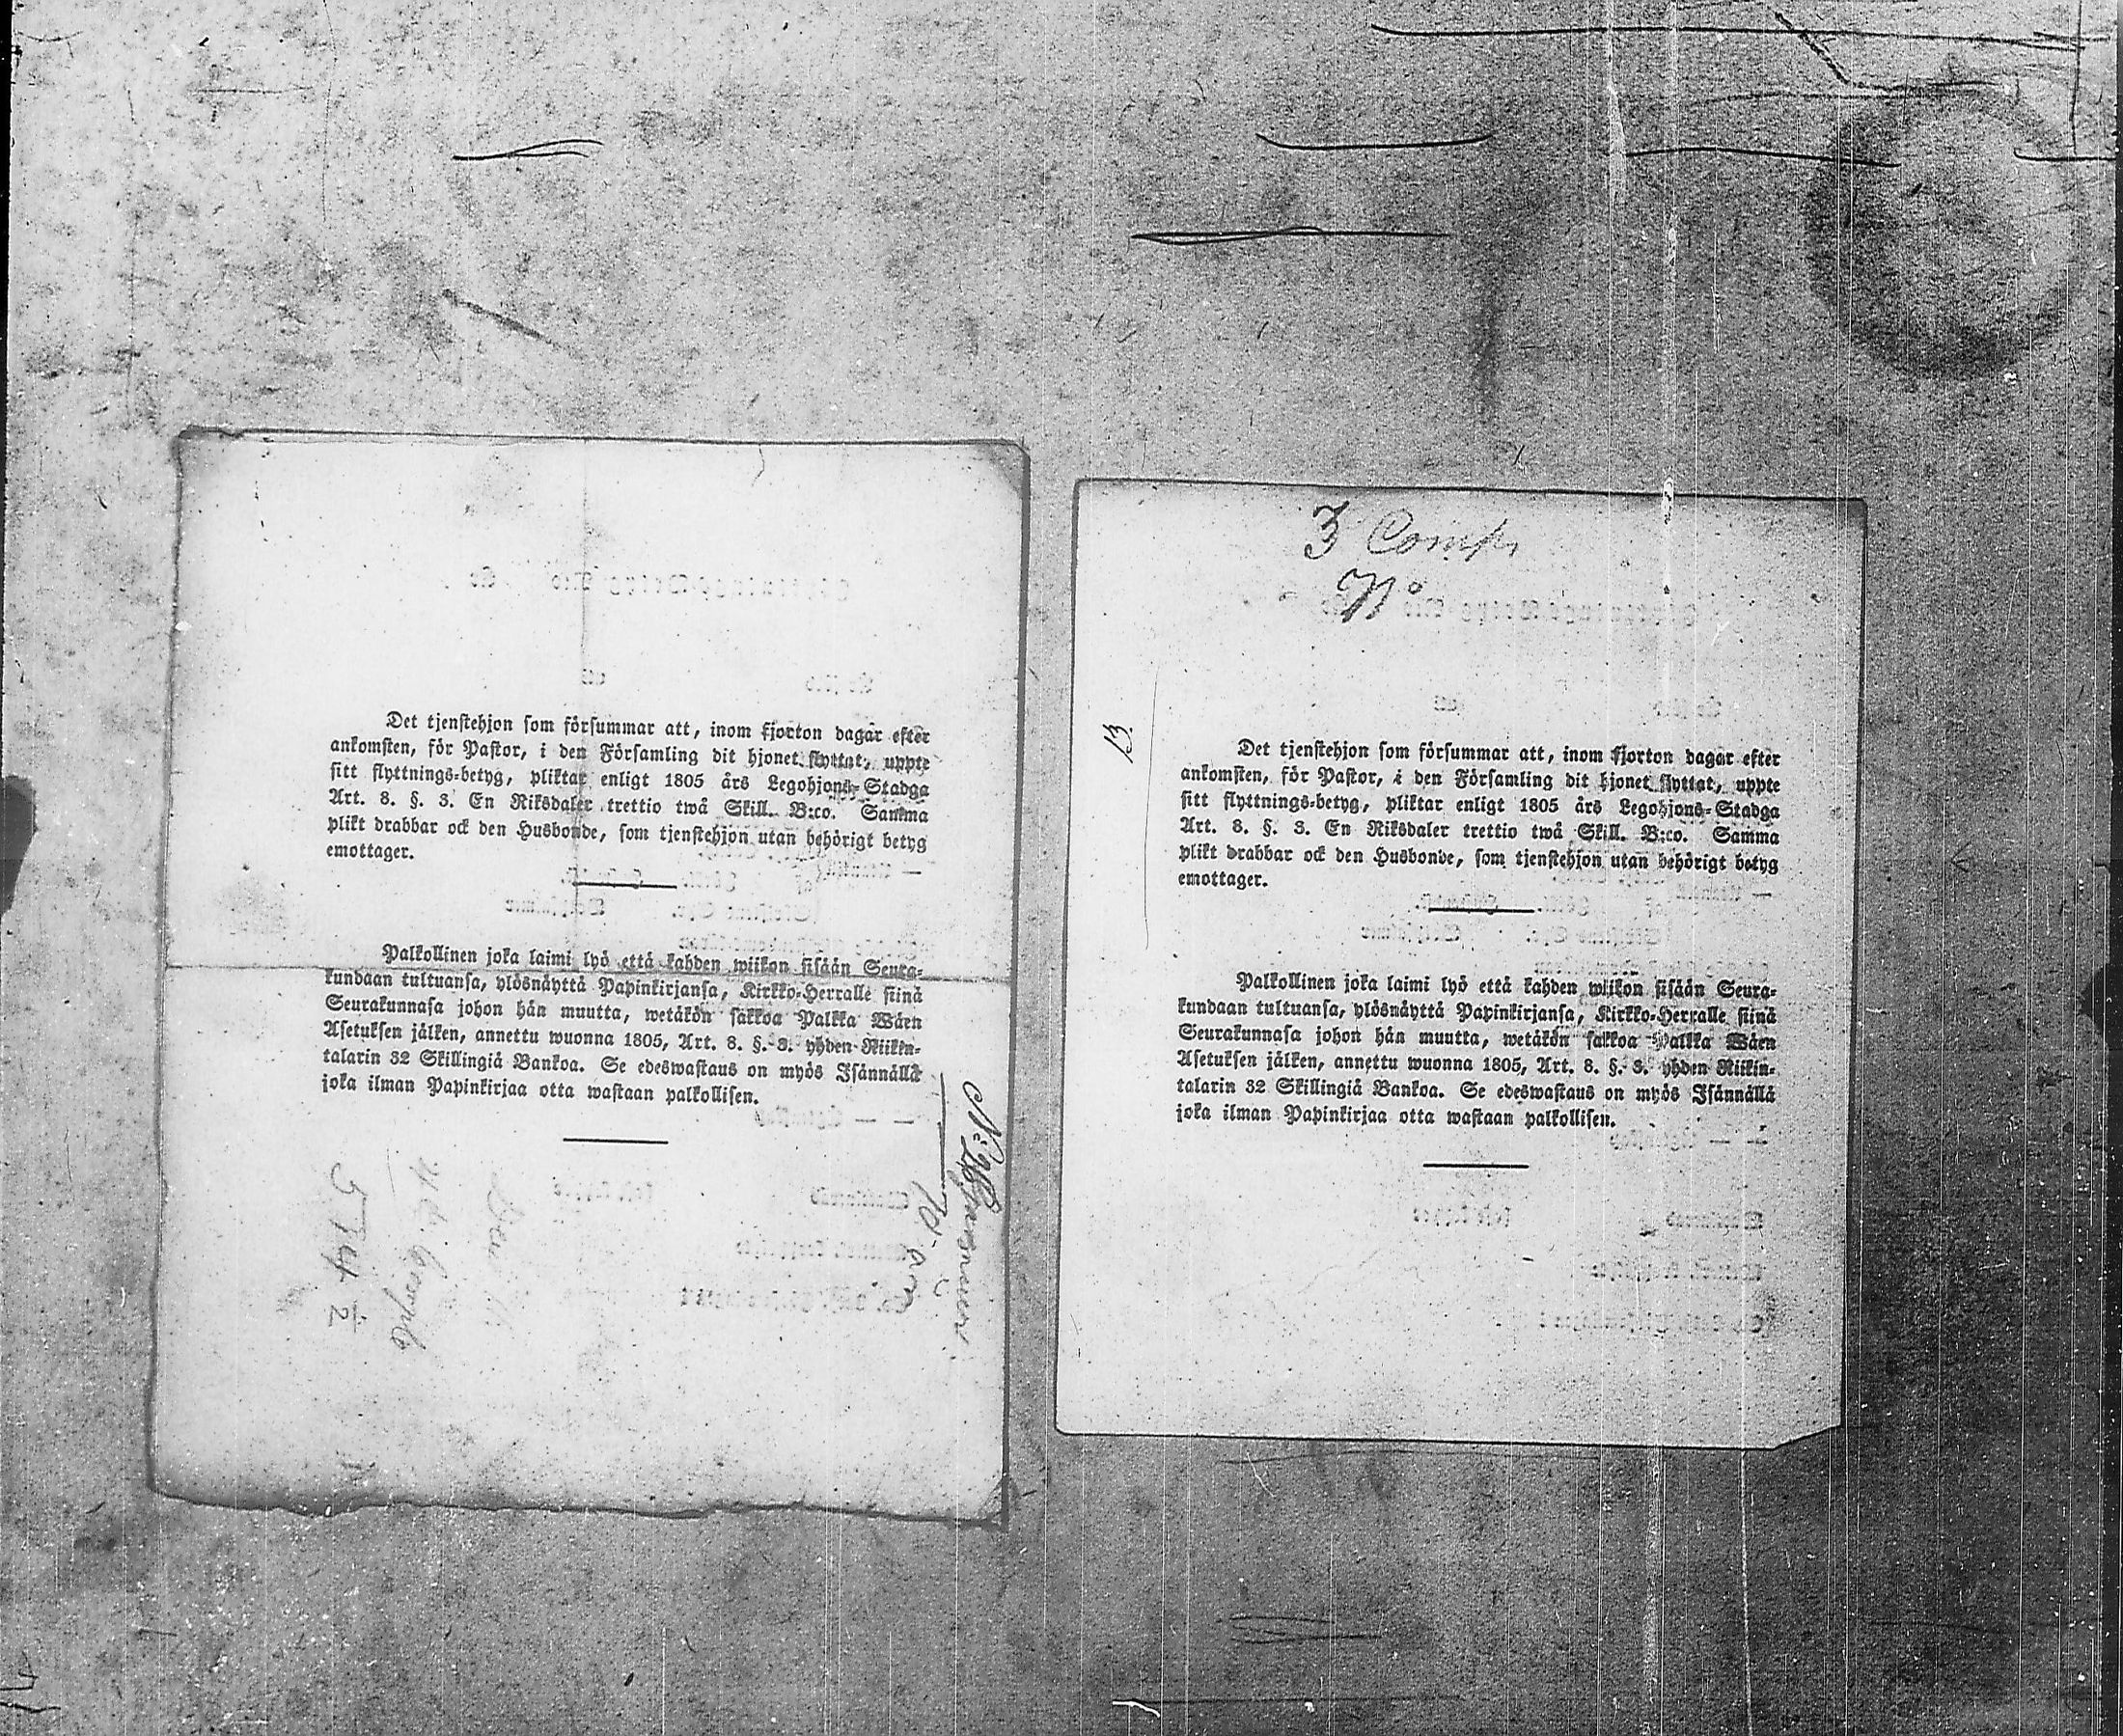 Det tjenstehjon som försummar att, inom fjorton dagar efter
ankomsten, för Pastor, i den Församling dit hjonet flyttat, uppte
sitt flyttnings-betyg, pliktar enligt 1805 års Legohjons-Stadga
Art. 8. §. 3. En Riksdaler trettio twå Skill. B:co. Samma
plikt drabbar ock den Husbonde, som tjenstehjon utan behörigt betyg
emottager.
Palkollinen joka laimi lyö että kahden wiikon sisään Seura-
kundaan tultuansa, ylösnäyttä Papinkirjansa, Kirkko-Herralle siinä
Seurakunnasa johon hän muutta, wetäkön sakkoa Palkka Wäen
Asetuksen jälken, annettu wuonna 1805, Art. 8. §. 3. yhden Riikin-
talarin 32 Skillingiä Bankoa. Se edeswastaus on myös Isännällä
joka ilman Papinkirjaa otta wastaan palkollisen.
3 Comp.
No
13.
Det tjenstehjon som försummar att, inom fjorton dagar efter
ankomsten, för Pastor, i den Församling dit hjonet flyttat, uppte
sitt flyttnings-betyg, pliktar enligt 1805 års Legohjons-Stadga
Art. 8. §. 3. En Riksdaler trettio twå Skill. B:co. Samma
plikt drabbar ock den Husbonde, som tjenstehjon utan behörigt betyg
emottager.
Palkollinen joka laimi lyö että kahden wiikon sisään Seura-
kundaan tultuansa, ylösnäyttä Papinkirjansa, Kirkko-Herralle siinä
Seurakunnasa johon hän muutta, wetäkön sakkoa Palkka Wäen
Asetuksen jälken, annettu wuonna 1805, Art. 8. §. 3. yhden Riikin-
talarin 32 Skillingiä Bankoa. Se edeswastaus on myös Isännällä
joka ilman Papinkirjaa otta wastaan palkollisen.